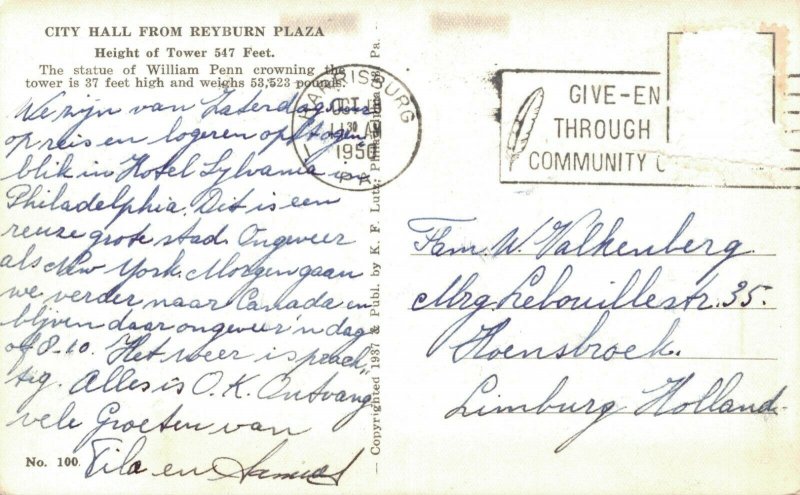 CITY HALL FROM REYBURN PLAZA
Height of Tower 547 Feet.
The statue of William Penn crowning the
tower is 37 feet high and weighs 53,523 pounds.
We zijn van Zaterdag
op reis en logeren op 't ogen
blik in Hotel Sylvania in
Philadelphia. Dit is een
reuze grote stad. Ongeveer
als New York. Morgen gaan
we verder naar Canada en
blijven daar ongeveer 'n dag
of 8-10. Het weer is prach
tig. Alles is O.K. Ontvang
vele Groeten van
en Samuel
No. 100
Copyrighted 1937 & Publ. by K. F. Lutz, Philadelphia, Pa.
HARRISBURG
OCT
11 30 AM
1950
PA
GIVE-EN
THROUGH
COMMUNITY C
Fam W. Valkenberg
Mrg. Lebouillestr. 35.
Hoensbroek.
Limburg Holland.